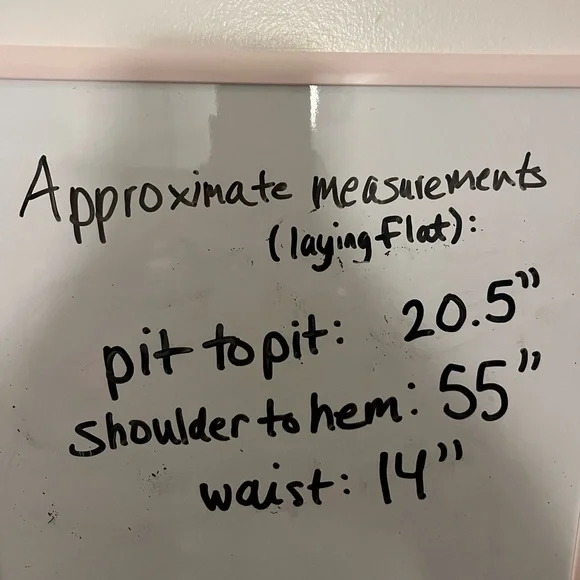 Approximate measurements
(laying flat):
pit to pit: 20.5"
shoulder to hem: 55"
waist: 14"